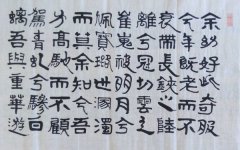 余幼好此奇服
兮年既老而不
衰帶長鋏之陸
離兮冠切雲之
崔嵬被明月兮
佩寶璐世溷濁
而莫余知兮吾
方高馳而不顧
駕青虬兮驂白
螭吾與重華遊